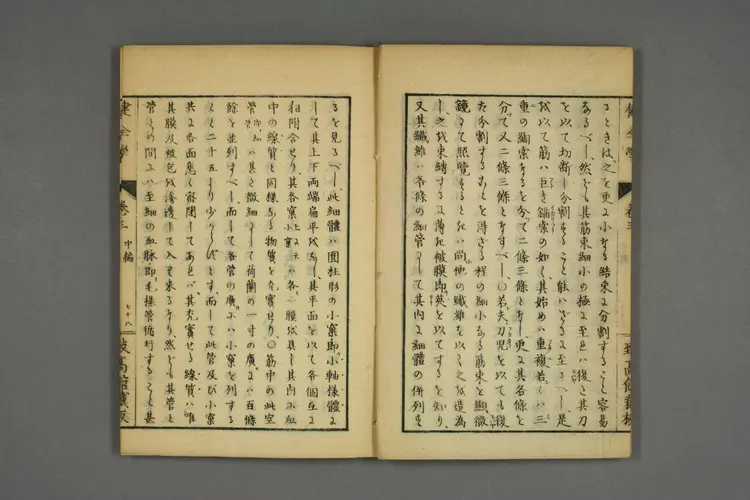 るときは之を更に小なる結束に分割すること容易
あるべし然ども其筋束細小の極に至ては復た其刀
を以て切断し分割すること能はざるに至るべし是
故以て筋は巨き錨索の如く其始めは重複若くは三
重の錨索なるを分て二條三條となし更に其各條を
分て又二條三條となすべし〇若夫刀児を以ても復
た分割することを得ざる程の細小なる筋束を顕微
鏡にて照覧するときは尚他の繊維を以て之を造為
し之を束縛するに薄き被膜即莢を以てすることを知り
又其繊維は各條の細管にして其内に細體の併列す
健全學 巻三
致高館蔵板
るを見るべし此細體は圓柱形の小窠即小軸様體に
して其上下両端扁平をなし其平面を以て各個互に
相附合せり其各窠は各一膜を具し其内に血
中の線質と同様なる物質を充實せり〇筋中の此空
管は甚だ微細にして荷蘭の一寸の廣に百條
餘を並列すべし而して各管の廣には小窠を列する
こと二十五より少からずとす而して此管及び小窠
共に各面悉く密閉してあれば其充實せる線質は唯
其膜及被包を滲透して入り来るなり然ども其管と
管との間には至細の血脉即毛様管循行すること甚
健全學 巻三 中編 七十八
致高館蔵板